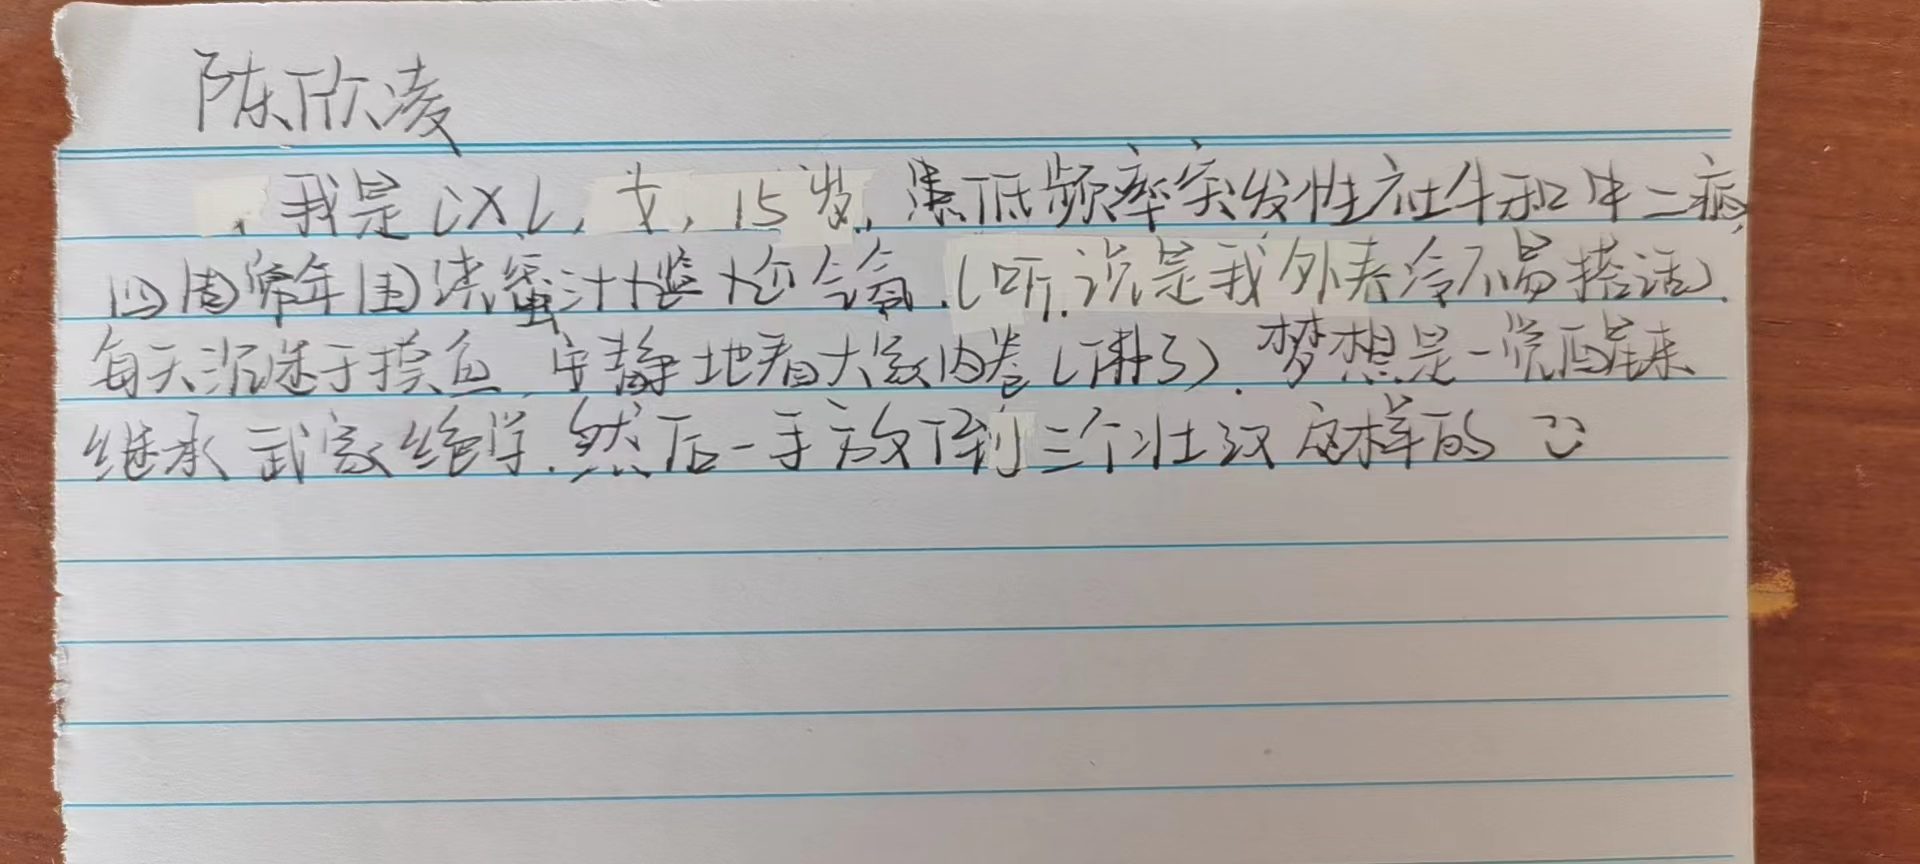 陈欣凌
我是CXL,女,15岁,患低频率突发性社牛和中二病,
四周常年围绕蜜汁尴尬气氛.(听说是我外表冷不易搭话).
每天沉迷于摸鱼,安静地看大家内卷(bushi).梦想是一觉醒来
继承武家绝学.然后一手放倒三个壮汉这样的